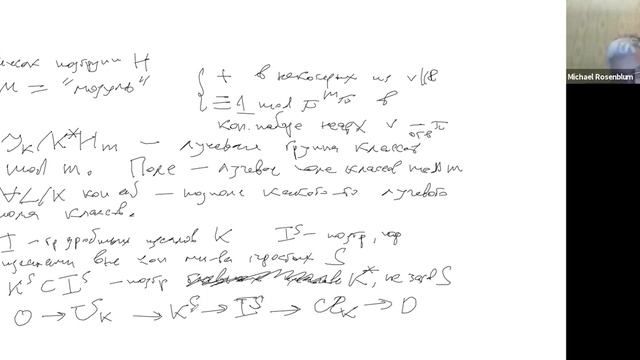 подгрупп H
m = "модуль"
{ + в некоторых из v|∞
≡ 1 mod π^{m_π} в
кон. наборе v
J_K/K^* H_m — лучевая группа классов
mod m. Поле — лучевое поле классов mod m
∀ L/K кон — подполе какого-то лучевого
поля классов.
I — гр дробных идеалов K I^S — подгр, пор
идеалами вне кон мн-ва простых S
K^S ⊂ I^S — подгр K^*, S
0 → U_K → K^S → I^S → Cl_K → 0
Michael Rosenblum